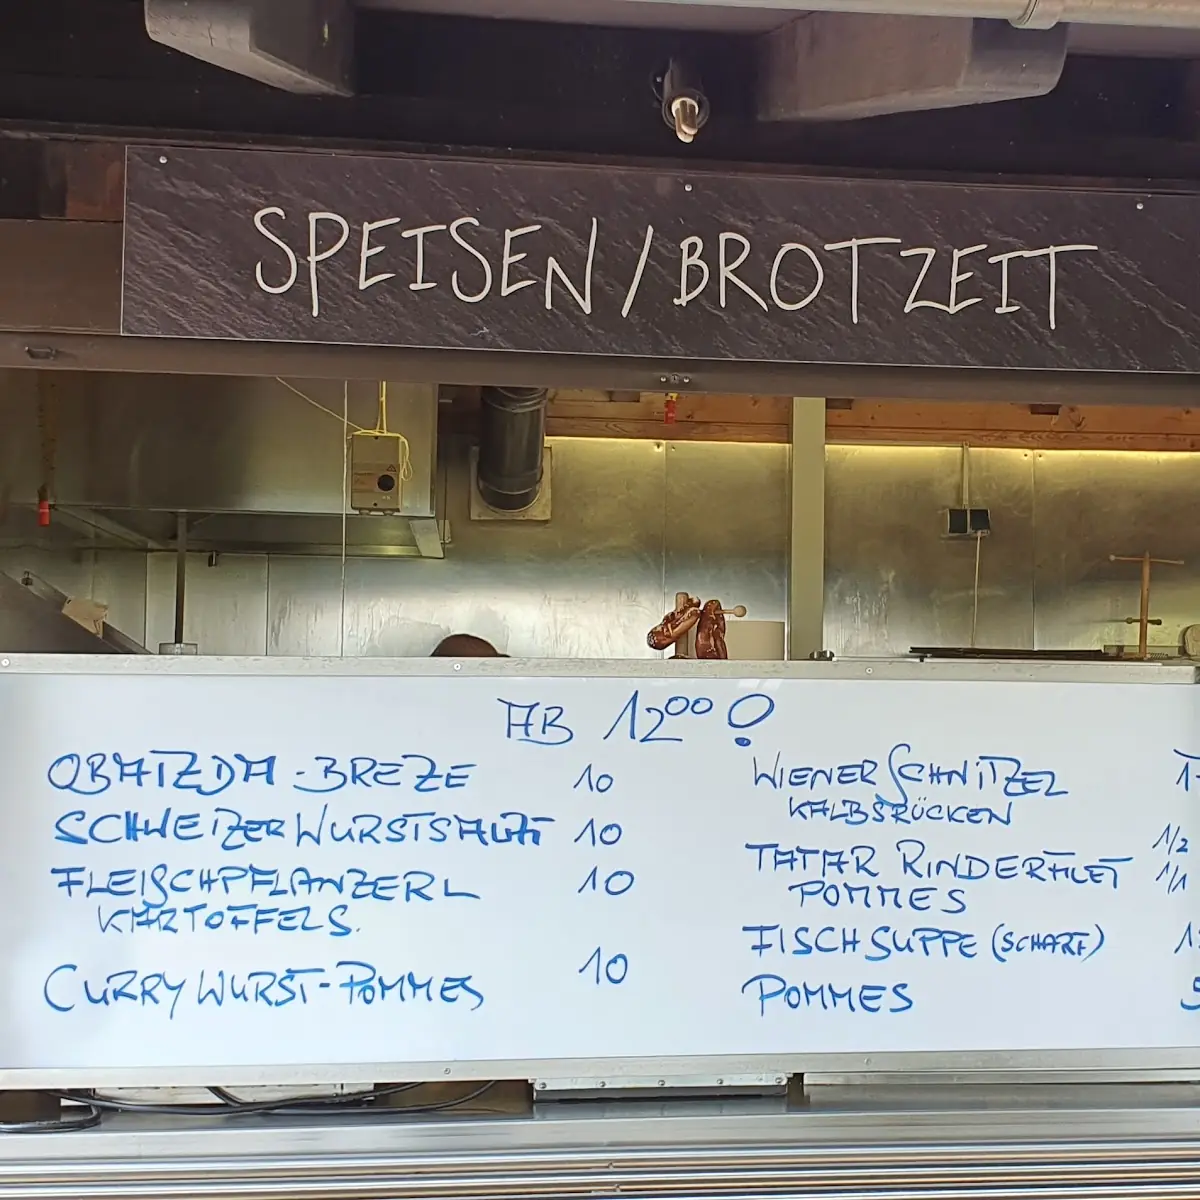 SPEISEN/BROTZEIT
AB 12⁰⁰!
OBATZDA-BREZE 10
SCHWEIZER WURSTSALAT 10
FLEISCHPFLANZERL 10
KARTOFFELS.
CURRYWURST-POMMES 10
WIENER SCHNITZEL
KALBSRÜCKEN
TATAR RINDERFILET 1/2
POMMES 1/1
FISCHSUPPE (SCHARF)
POMMES 5